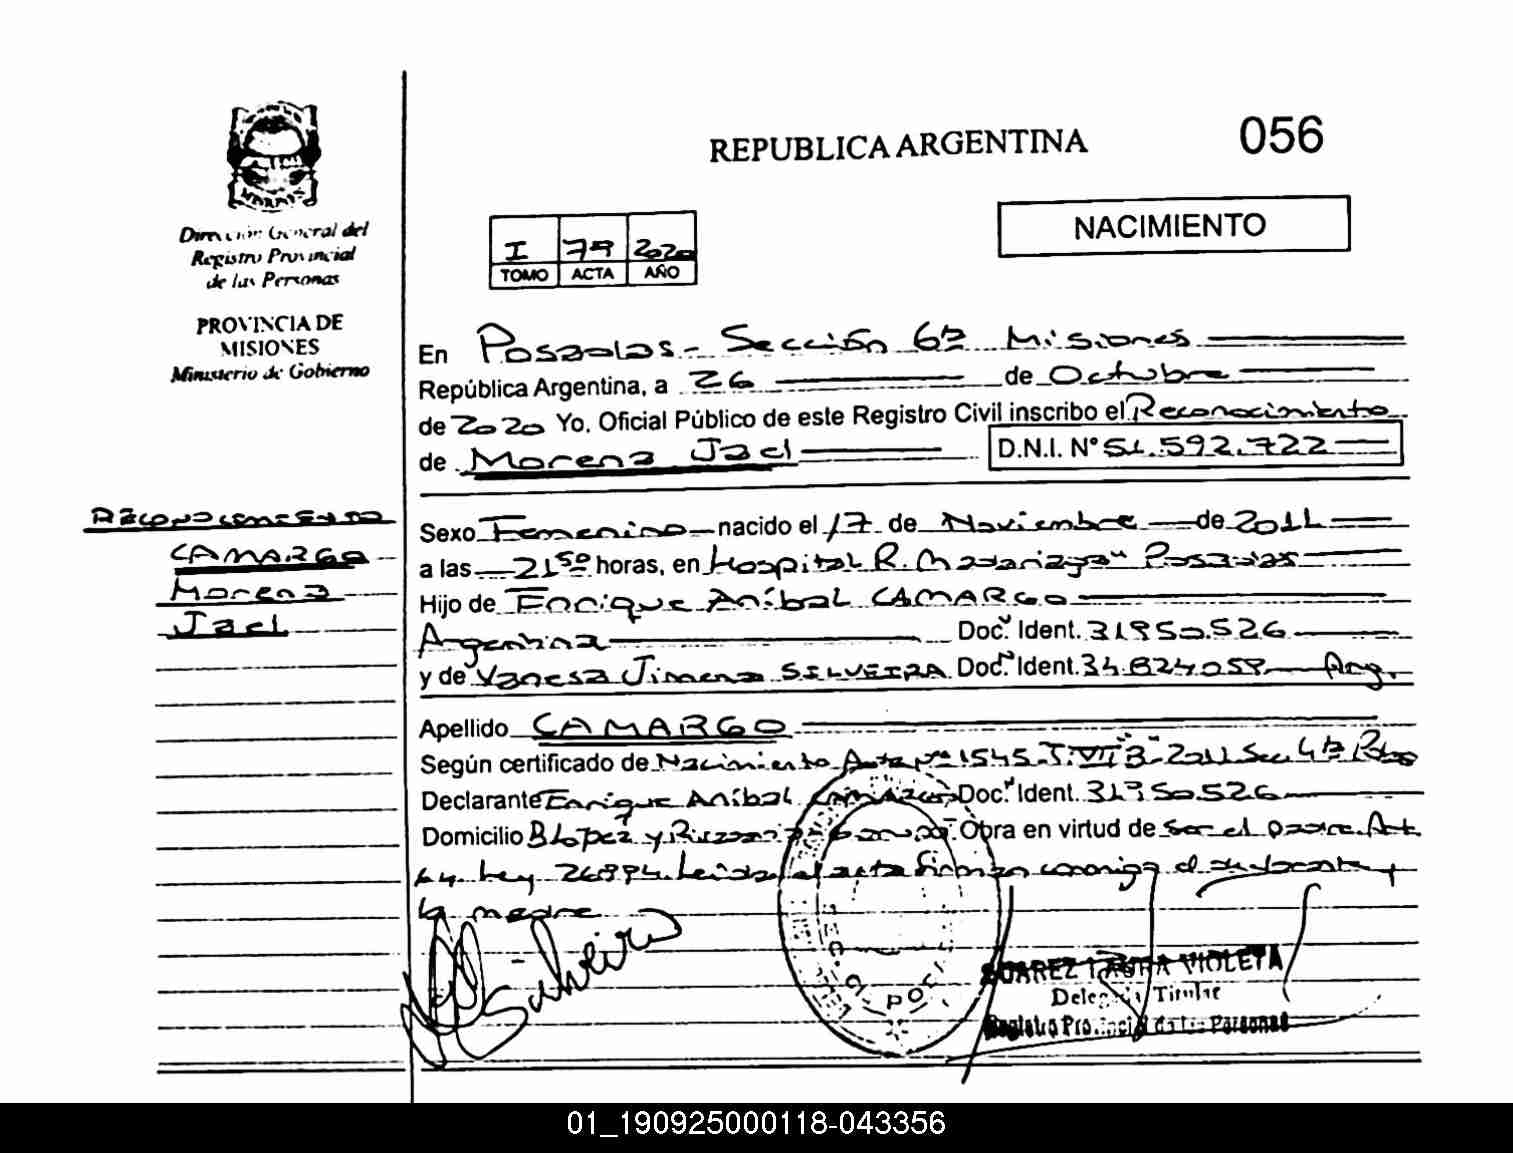 REPUBLICA ARGENTINA
056
NACIMIENTO
Dirección General del
Registro Provincial
de las Personas
PROVINCIA DE
MISIONES
Ministerio de Gobierno
I 79 2020
TOMO ACTA AÑO
En Posadas - Sección 6ta Misiones
República Argentina, a 26 de Octubre
de 2020 Yo, Oficial Público de este Registro Civil inscribo el Reconocimiento
de Morena Jael D.N.I. Nº 51.592.722
RECONOCIMIENTO
CAMARGO
Morena
Jael
Sexo Femenino nacido el 17 de Noviembre de 2011
a las 21 50 horas, en Hospital R. Madariaga" Posadas
Hijo de Enrique Aníbal CAMARGO
Argentina Doc. Ident. 31.950.526
y de Vanesa Jimena SILVEIRA Doc. Ident. 34.824.059 Arg.
Apellido CAMARGO
Según certificado de Nacimiento Acta Nº 1545-T.VII "B"-2011 Sec. 4ta Pdas
Declarante Enrique Aníbal CAMARGO Doc. Ident. 31.950.526
Domicilio B. López y Obra en virtud de ser el padre. Art.
64. Ley 26994. Leída el acta firman conmigo el declarante y
la madre
Silveira
SUAREZ LAURA VIOLETA
Delegada Titular
Registro Provincial de las Personas
01_190925000118-043356